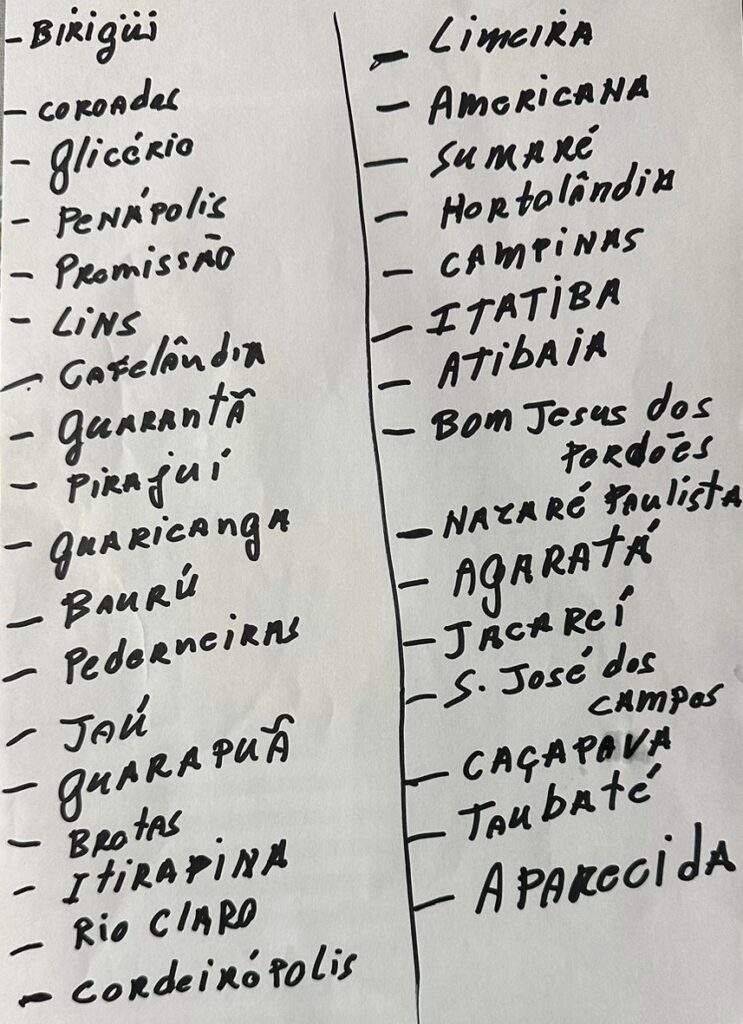 - Birigüi
- COROADAS
- glicério
- PENÁPOLIS
- PROMISSÃO
- LINS
- CAFELÂNDIA
- GUARANTÃ
- PIRAJUÍ
- GUARICANGA
- BAURÚ
- PEDERNEIRAS
- JAÚ
- GUARAPUÃ
- BROTAS
- ITIRAPINA
- Rio CLARO
- CORDEIRÓPOLIS
- LIMEIRA
- AMERICANA
- SUMARÉ
- HORTOLÂNDIA
- CAMPINAS
- ITATIBA
- ATIBAIA
- BOM JESUS dos
PERDÕES
- NAZARÉ PAULISTA
- AGARATÁ
- JACAREÍ
- S. JOSÉ dos
CAMPOS
- CAÇAPAVA
- TAUBATÉ
- APARECIDA